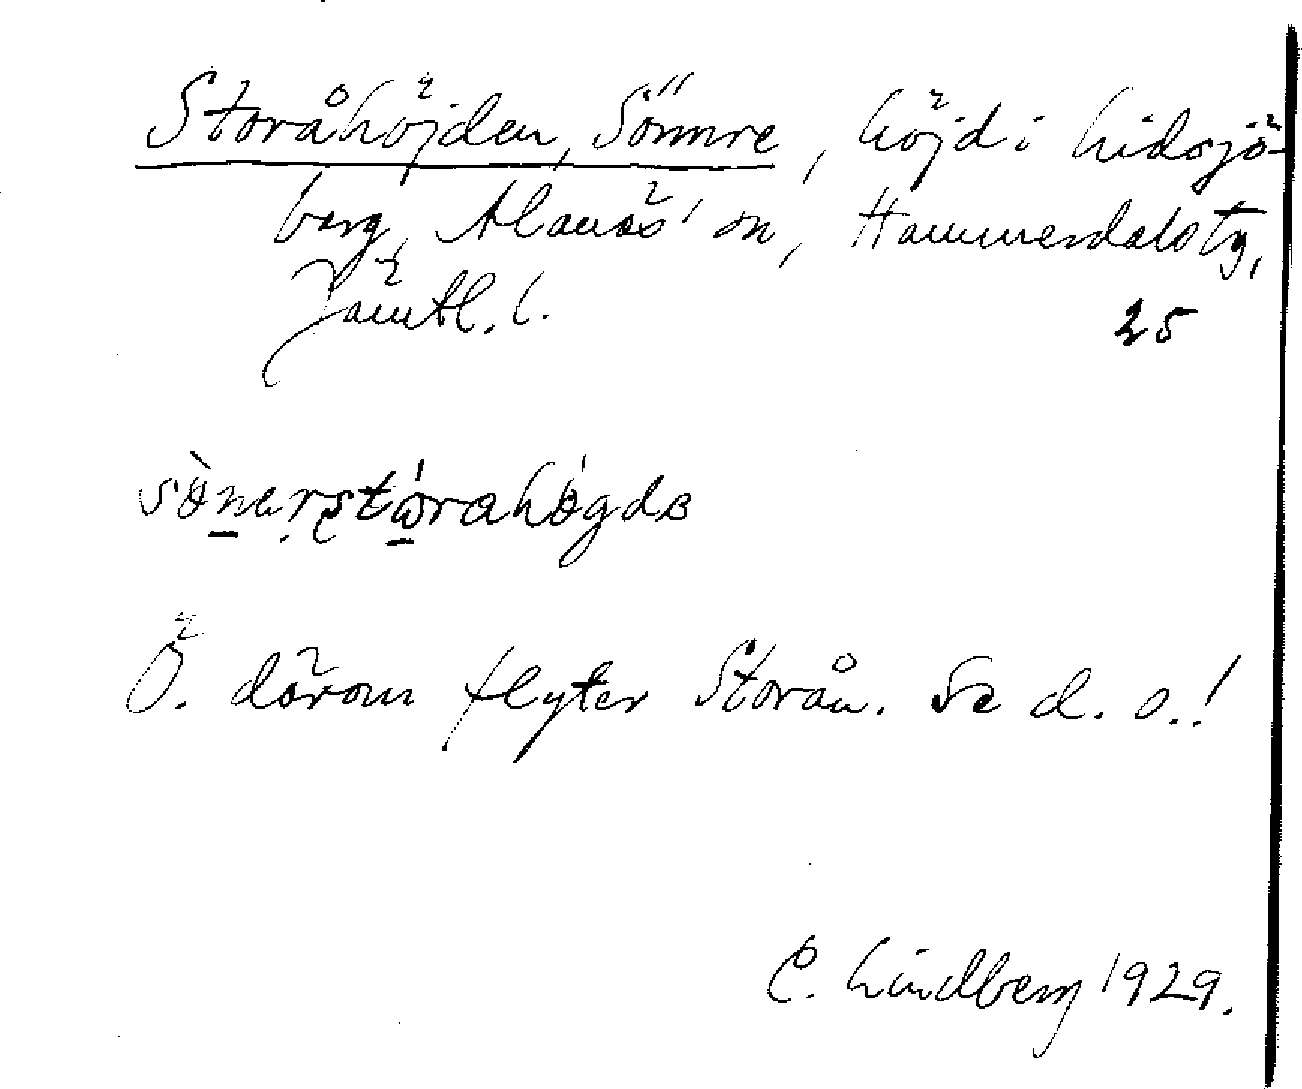 Storåhöjden, Sönnre, höjd i Lidsjö-
berg, Alanäs' sn, Hammerdals tg,
Jämtl. l.
25
Ö. därom flyter Storån. Se d. o.!
C. Lindberg 1929.